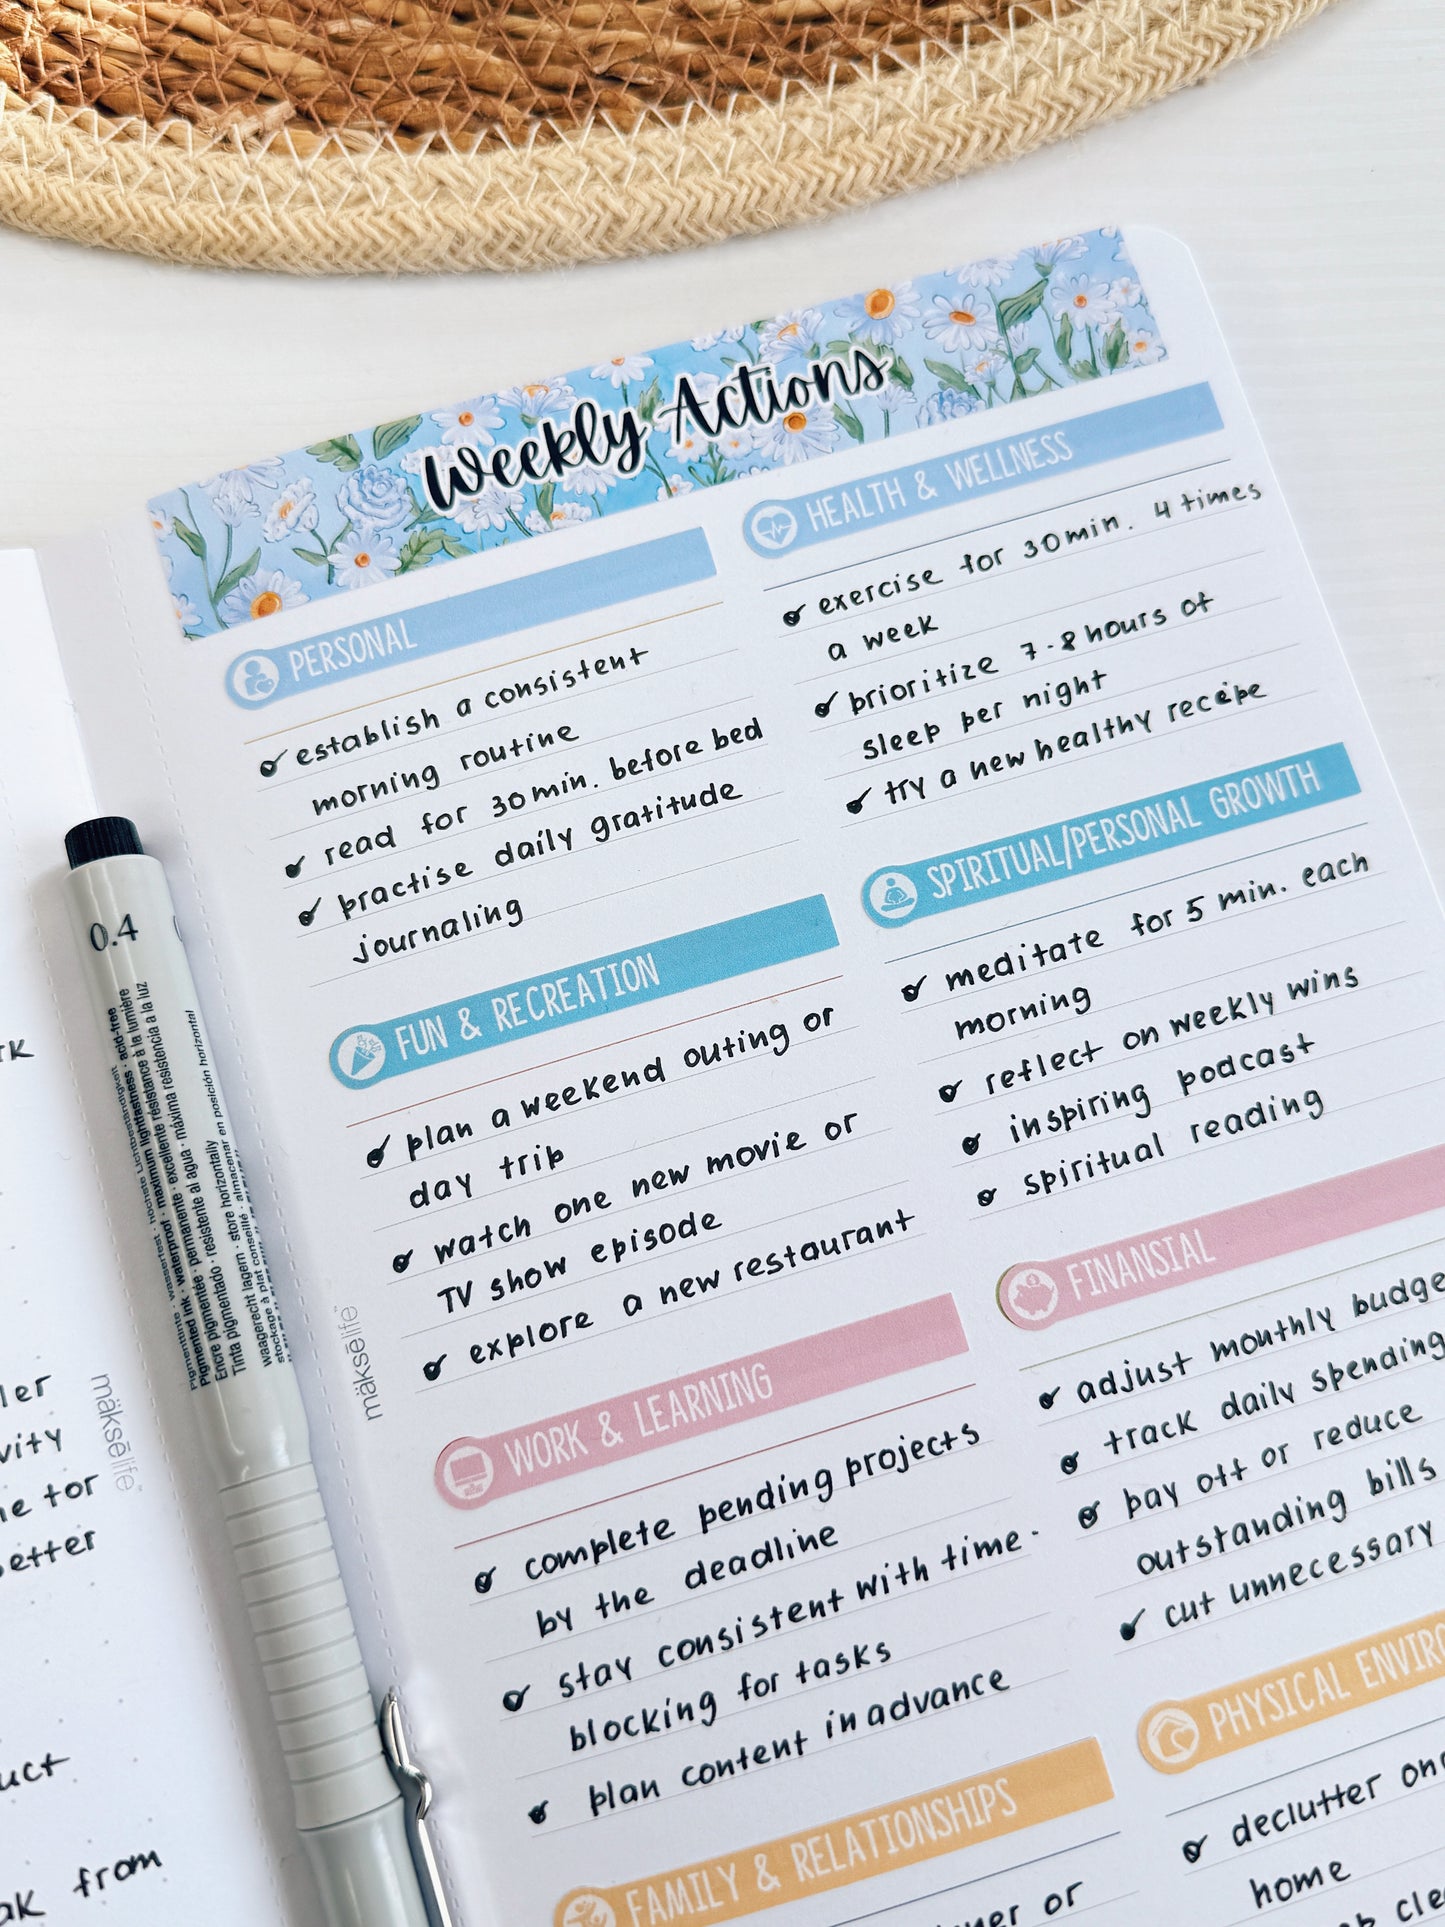 Weekly Actions
PERSONAL
establish a consistent
morning routine
read for 30 min. before bed
practise daily gratitude
journaling
FUN & RECREATION
plan a weekend outing or
day trip
watch one new movie or
TV show episode
explore a new restaurant
WORK & LEARNING
complete pending projects
by the deadline
stay consistent with time-
blocking for tasks
plan content in advance
FAMILY & RELATIONSHIPS
or
HEALTH & WELLNESS
exercise for 30 min. 4 times
a week
prioritize 7-8 hours of
sleep per night
try a new healthy recepe
SPIRITUAL/PERSONAL GROWTH
meditate for 5 min. each
morning
reflect on weekly wins
inspiring podcast
spiritual reading
FINANSIAL
adjust mouthly budge
track daily spending
pay off or reduce
outstanding bills
cut unnecessary
PHYSICAL ENVIRO
declutter on
home
cle
mäksēlife
mäksēlife
0.4
Pigmented ink · permanente · resistente al agua · máxima resistencia a la luz
Encre pigmentée · Waterproof · maximum lightfastness · acid-free
Tinta pigmentado · store horizontally
waagerecht lagern · almacenar en posición horizontal
stockage à plat conseillé
ler
vity
e for
etter
uct
from